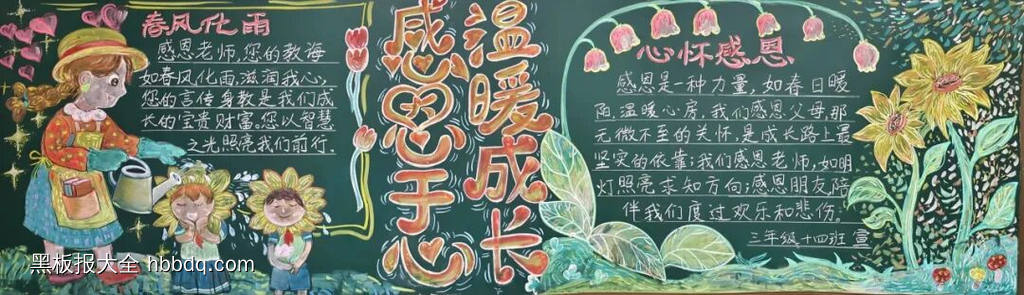 春风化雨
感恩老师,您的教海
如春风化雨,滋润我心,
您的言传身教是我们成
长的宝贵财富。您以智慧
之光照亮我们前行.
感恩于心
温暖成长
心怀感恩
感恩是一种力量,如春日暖
阳,温暖心房,我们感恩父母,那
无微不至的关怀,是成长路上最
坚实的依靠;我们感恩老师,如明
灯照亮求知方向;感恩朋友陪
伴我们度过欢乐和悲伤.
三年级十四班 宣
黑板报大全 hbbdq.com